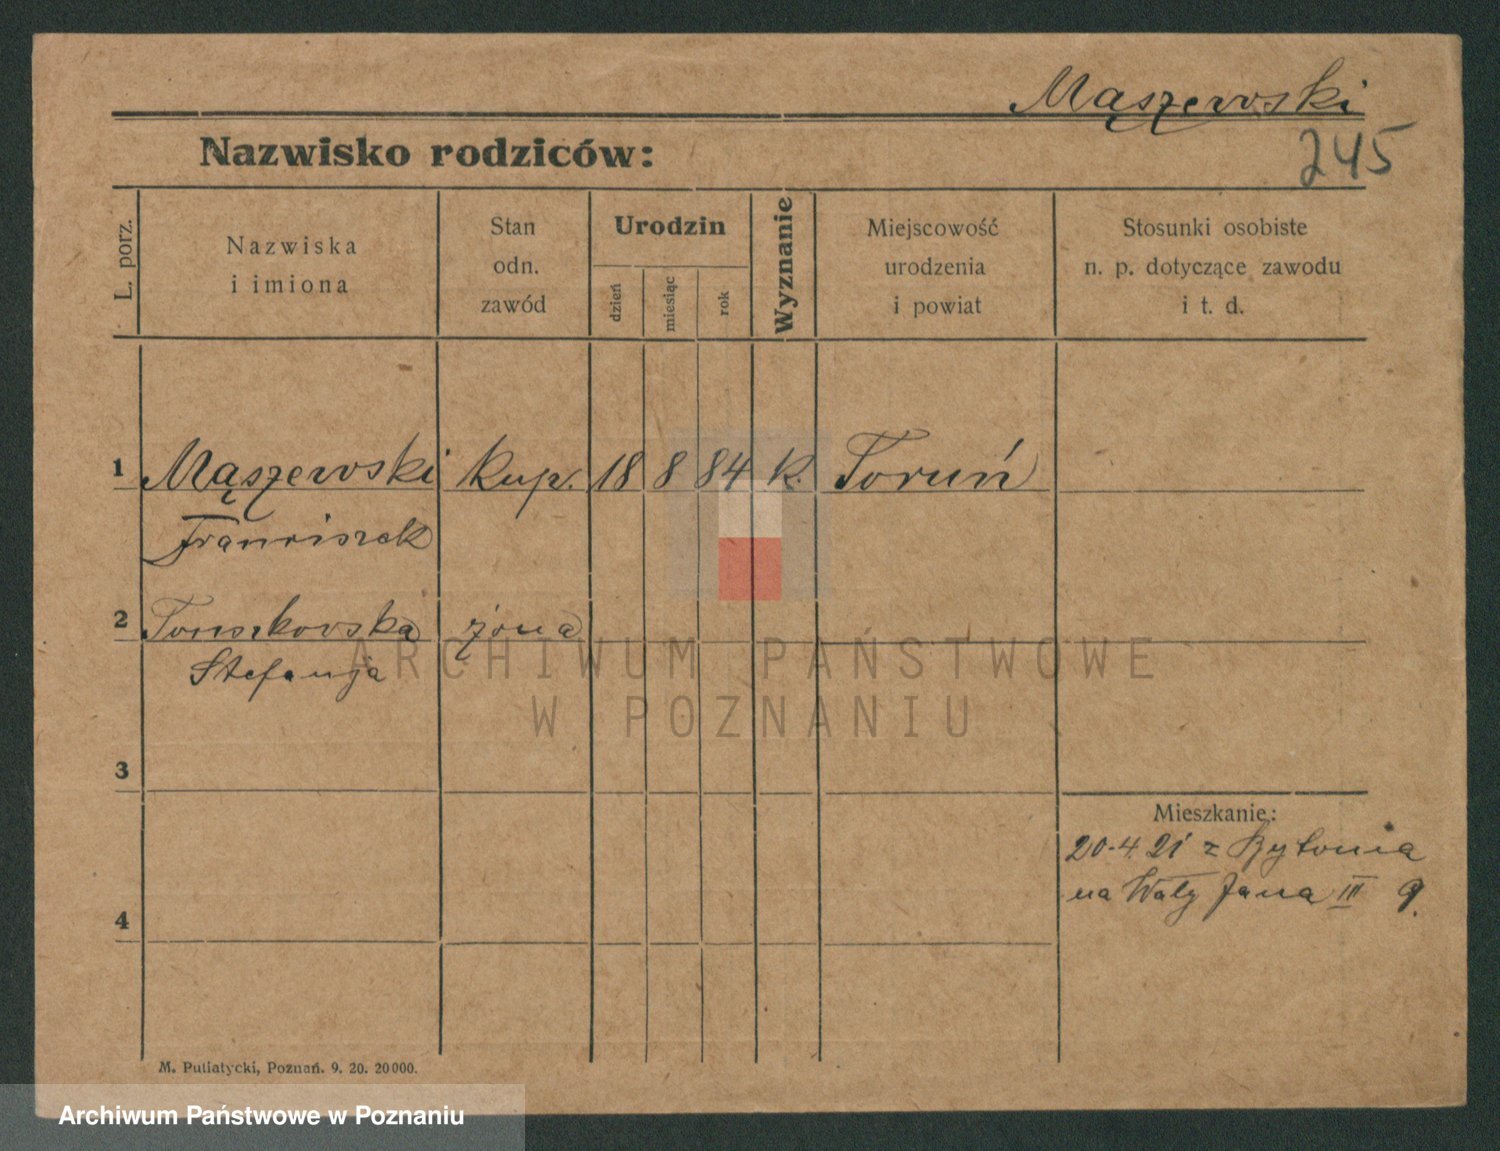 Mąszewski
245
Nazwisko rodziców:
L. porz.
Nazwiska
i imiona
Stan
odn.
zawód
Urodzin
dzień
miesiąc
rok
Wyznanie
Miejscowość
urodzenia
i powiat
Stosunki osobiste
n. p. dotyczące zawodu
i t. d.
1 Mąszewski kup. 18 8 84 k. Toruń
Franciszek
2 żona
Stefanja
ARCHIWUM PAŃSTWOWE
W POZNANIU
3
Mieszkanie:
20.4.21 z Bytomia
na Wały Jana III 9.
4
M. Putiatycki, Poznań. 9. 20. 20000.
Archiwum Państwowe w Poznaniu